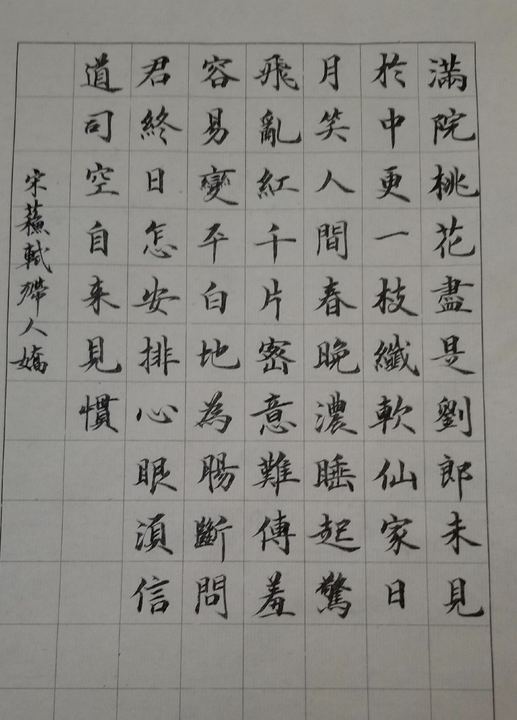 滿院桃花盡是劉郎未見
於中更一枝纖軟仙家日
月笑人間春晚濃睡起驚
飛亂紅千片密意難傳羞
容易變平白地為腸斷問
君終日怎安排心眼須信
道司空自來見慣
宋蘇軾殢人嬌